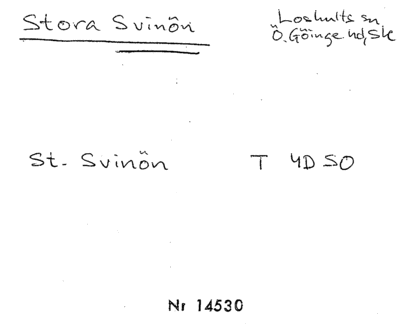 Stora Svinön
Loshults sn
Ö. Göinge hd, Sk
St. Svinön T 4D SO
Nr 14530